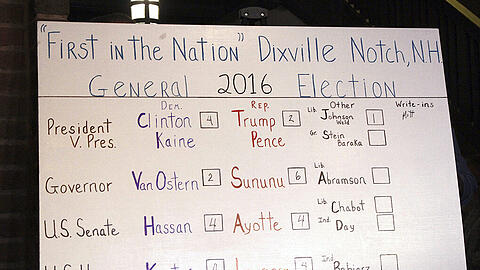 "First in the Nation" Dixville Notch, NH.
General 2016 Election
Dem. Rep. Other Write-ins
President Clinton 4 Trump 2 Lib. Johnson Weld 1
V. Pres. Kaine Pence Gr. Stein Baraka
Governor Van Ostern 2 Sununu 6 Lib. Abramson
Lib. Chabot
U.S. Senate Hassan 4 Ayotte 4 Ind. Day
Ind.